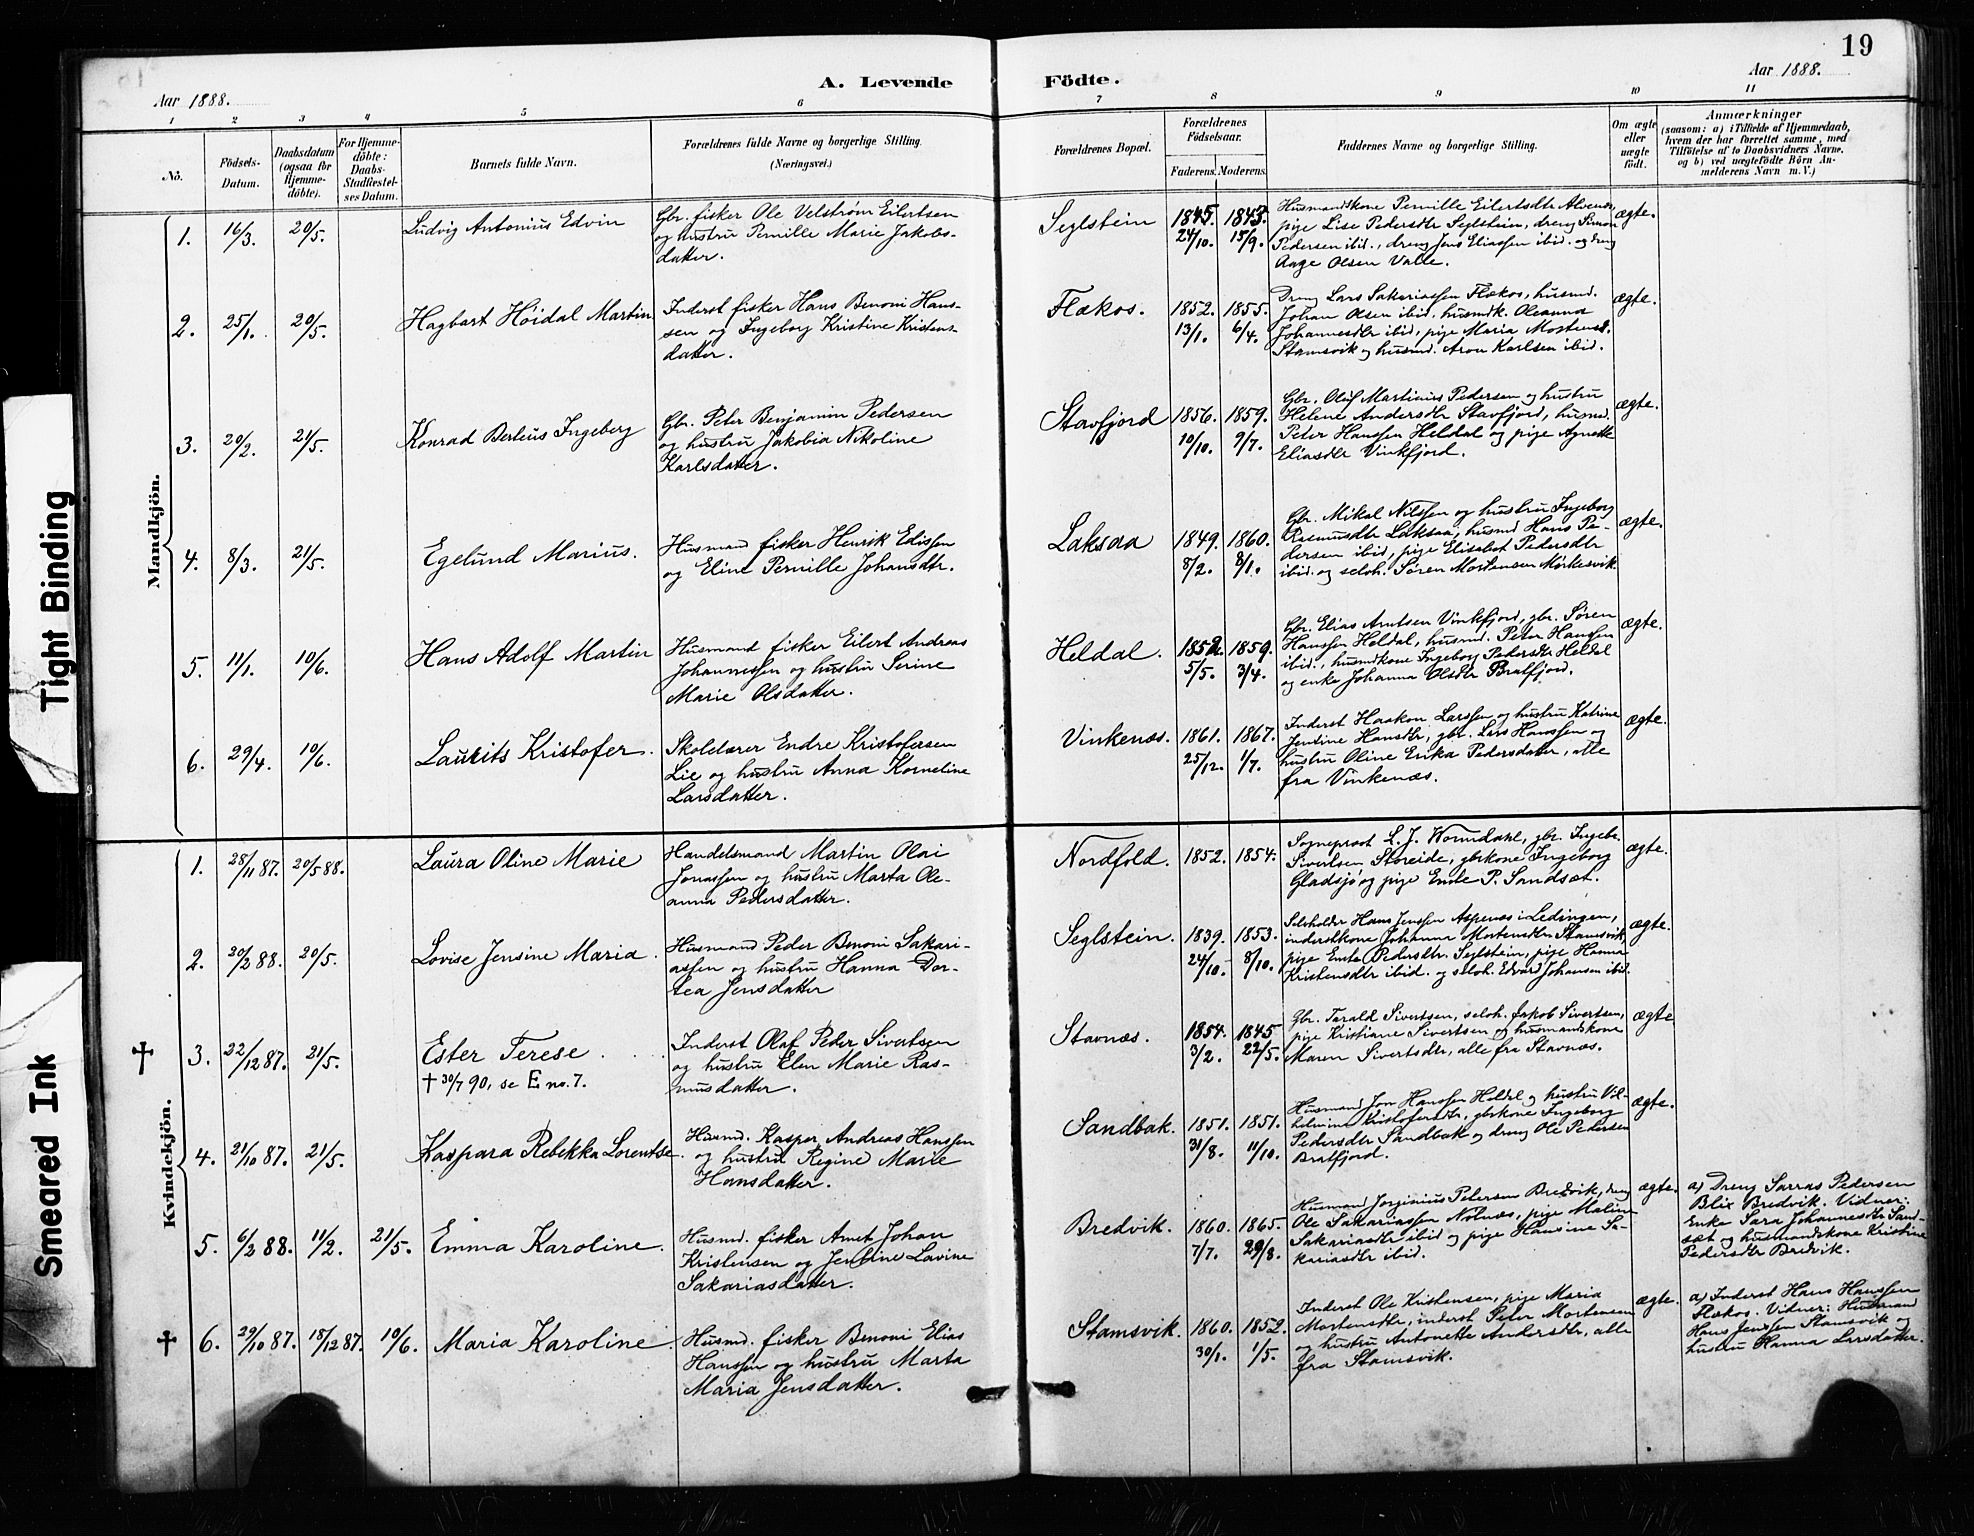 19
A. Levende Födte.
Aar 1888.
Aar 1888.
1 2 3 4 5 6 7 8 9 10 11
No.
Födsels-
Datum.
Daabsdatum
(ogsaa for
Hjemme-
döbte).
For Hjemme-
döbte:
Daabs-
Stadfæstel-
ses Datum.
Barnets fulde Navn.
Forældrenes fulde Navne og borgerlige Stilling.
(Næringsvei.)
Forældrenes Bopæl.
Forældrenes
Födselsaar.
Faderens. Moderens.
Faddernes Navne og borgerlige Stilling.
Om ægte
eller
uægte
født.
Anmærkninger
(saasom: a) i Tilfælde af Hjemmedaab,
hvem der har forrettet samme, med
Tilføielse af to Daabsvidners Navne,
og b) ved uægtefödte Börn An-
melderens Navn m. V.)
Mandkjön.
1. 16/3. 20/5.
Ludvig Antonius Edvin
Gbr. fisker Ole Velstrøm Eilertsen
og hustru Pernille Marie Jakobs-
datter.
Seglstein
1845. 1843.
24/10. 15/9.
Husmandskone Pernille Eilertsdtr
pige Lise Pedersdtr Seglstein, dreng Simon
Pedersen ibid., dreng Jens Eliassen ibid. og dreng
Aage Olsen Valle.
ægte.
2. 25/1. 20/5.
Hagbart Höidal Martin
Inderst fisker Hans Benoni Hans-
sen og Ingeborg Kristine Kristens-
datter.
Flækos.
1852. 1855.
13/1. 6/4.
Dreng Lars Sakariassen Flækos, husmd.
Johan Olsen ibid. husmdk. Oleanna
Johannesdtr ibid, pige Maria Mortensd.
Stamsvik og husmd. Aron Karlsen ibid.
ægte.
3. 20/2. 21/5.
Konrad Berleus Ingeberg
Gbr. Peter Benjamin Pedersen
og hustru Jakobia Nikoline
Karlsdatter.
Stavfjord
1856. 1859.
10/10. 9/7.
Gbr. Oluf Martinus Pedersen og hustru
Helene Andersdtr Stavfjord, husmd.
Peter Hanssen Heldal og pige Agnette
Eliasdtr Vinkfjord.
ægte.
4. 8/3. 21/5.
Egelund Marius.
Husmand fisker Henrik Edissen
og Eline Pernille Johansdtr.
Laksaa
1849. 1860.
8/2. 8/1.
Gbr. Mikal Nilssen og hustru Ingeborg
Rasmusdtr Laksaa, husmd Hans Pe-
dersen ibid, pige Elisabet Pedersdtr
ibid. og seloh. Søren Mortensen Mørkesvik
ægte.
5. 11/1. 10/6.
Hans Adolf Martin
Husmand fisker Eilert Andreas
Johannessen og hustru Serine
Marie Olsdatter.
Heldal.
1852. 1859.
5/5. 3/4.
Gbr. Elias Arntsen Vinkfjord, gbr. Søren
Hanssen Heldal, husmd. Peter Hanssen
ibid., husmdkone Ingeborg Pedersdtr Heldal
og enke Johanna Olsdtr Bratfjord.
ægte.
6. 29/4. 10/6.
Laurits Kristofer.
Skolelærer Endre Kristofersen
Lie og hustru Anna Korneline
Larsdatter.
Vinkenæs.
1861. 1867.
25/12. 1/7.
Inderst Haakon Larssen og hustru Katrine
Jensine Hansdtr, gbr. Lars Hanssen og
hustru Oline Erika Pedersdatter, alle
fra Vinkenæs.
ægte.
Kvindekjön.
1. 28/11 87. 20/5 88.
Laura Oline Marie
Handelsmand Martin Olai
Jonassen og hustru Marta Ole-
anna Pedersdatter.
Nordfold.
1852. 1854.
Sogneprest L. J. Wormdahl, gbr. Ingebr.
Sivertsen Storeide, gbrkone Ingeborg
Gladsjø og pige Enke P. Sandsæt.
ægte.
2. 20/2 88. 20/5.
Lovise Jensine Maria.
Husmand Peder Benoni Sakari-
assen og hustru Hanna Dor-
tea Jensdatter
Seglstein.
1839. 1853.
24/10. 8/10.
Seloholder Hans Jenssen Aspenæs i Lødingen,
inderstkone Johanna Mortensdtr Stamsvik,
pige Enke Pedersdtr. Seglstein, pige Hanna
Kristensdtr ibid. og seloh. Edvard Johansen ibid.
ægte.
† 3. 22/12 87. 21/5.
Ester Terese
† 30/7 90, se E no. 7.
Inderst Olaf Peder Sivertsen
og hustru Elen Marie Ras-
musdatter.
Stavnæs.
1854. 1845
3/2. 22/5.
Gbr. Tarald Sivertsen, seloh. Jakob Sivertsen,
pige Kristiane Sivertsen og husmandskone
Maren Sivertsdtr, alle fra Stavnæs.
ægte
4. 21/10 87. 21/5.
Kaspara Rebekka Lorentse.
Husmd. Kasper Andreas Hanssen
og hustru Regine Marie
Hansdatter.
Sandbak.
1851. 1851.
31/8. 11/10.
Husmand Jon Hanssen Heldal og hustru Vil-
helmine Kristofersdtr, gbrkone Ingeborg
Pedersdtr Sandbak og dreng Ole Pedersen
Bratfjord.
ægte.
5. 6/2 88. 11/2. 21/5.
Emma Karoline.
Husmd. fisker Arnt Johan
Kristensen og Jensine Lovine
Sakariasdatter.
Bredvik.
1860. 1865.
7/7. 29/8.
Husmand Jorginius Petersen Bredvik, dreng
Ole Sakariassen Nolnæs, pige Malene
Sakariasdtr ibid og pige Hansine Sa-
kariasdtr ibid.
ægte.
a) Dreng Sarras Pedersen
Blix Bredvik. Vidner:
Enke Sara Johannesdtr Sand-
sæt og husmandskone Kristine
Pedersdtr Bredvik.
† 6. 29/10 87. 18/12 87. 10/6.
Maria Karoline.
Husmd. fisker Benoni Elias
Hanssen og hustru Marta
Maria Jensdatter.
Stamsvik.
1860. 1852.
30/1. 1/5.
Inderst Ole Kristensen, pige Maria
Mortensdtr, inderst Peter Mortensen
og hustru Antonette Andersdtr, alle
fra Stamsvik.
ægte.
a) Inderst Hans Hanssen
Flækos. Vidner: Husmand
Hans Jenssen Stamsvik og
hustru Hanna Larsdatter.
Tight Binding
Smeared Ink